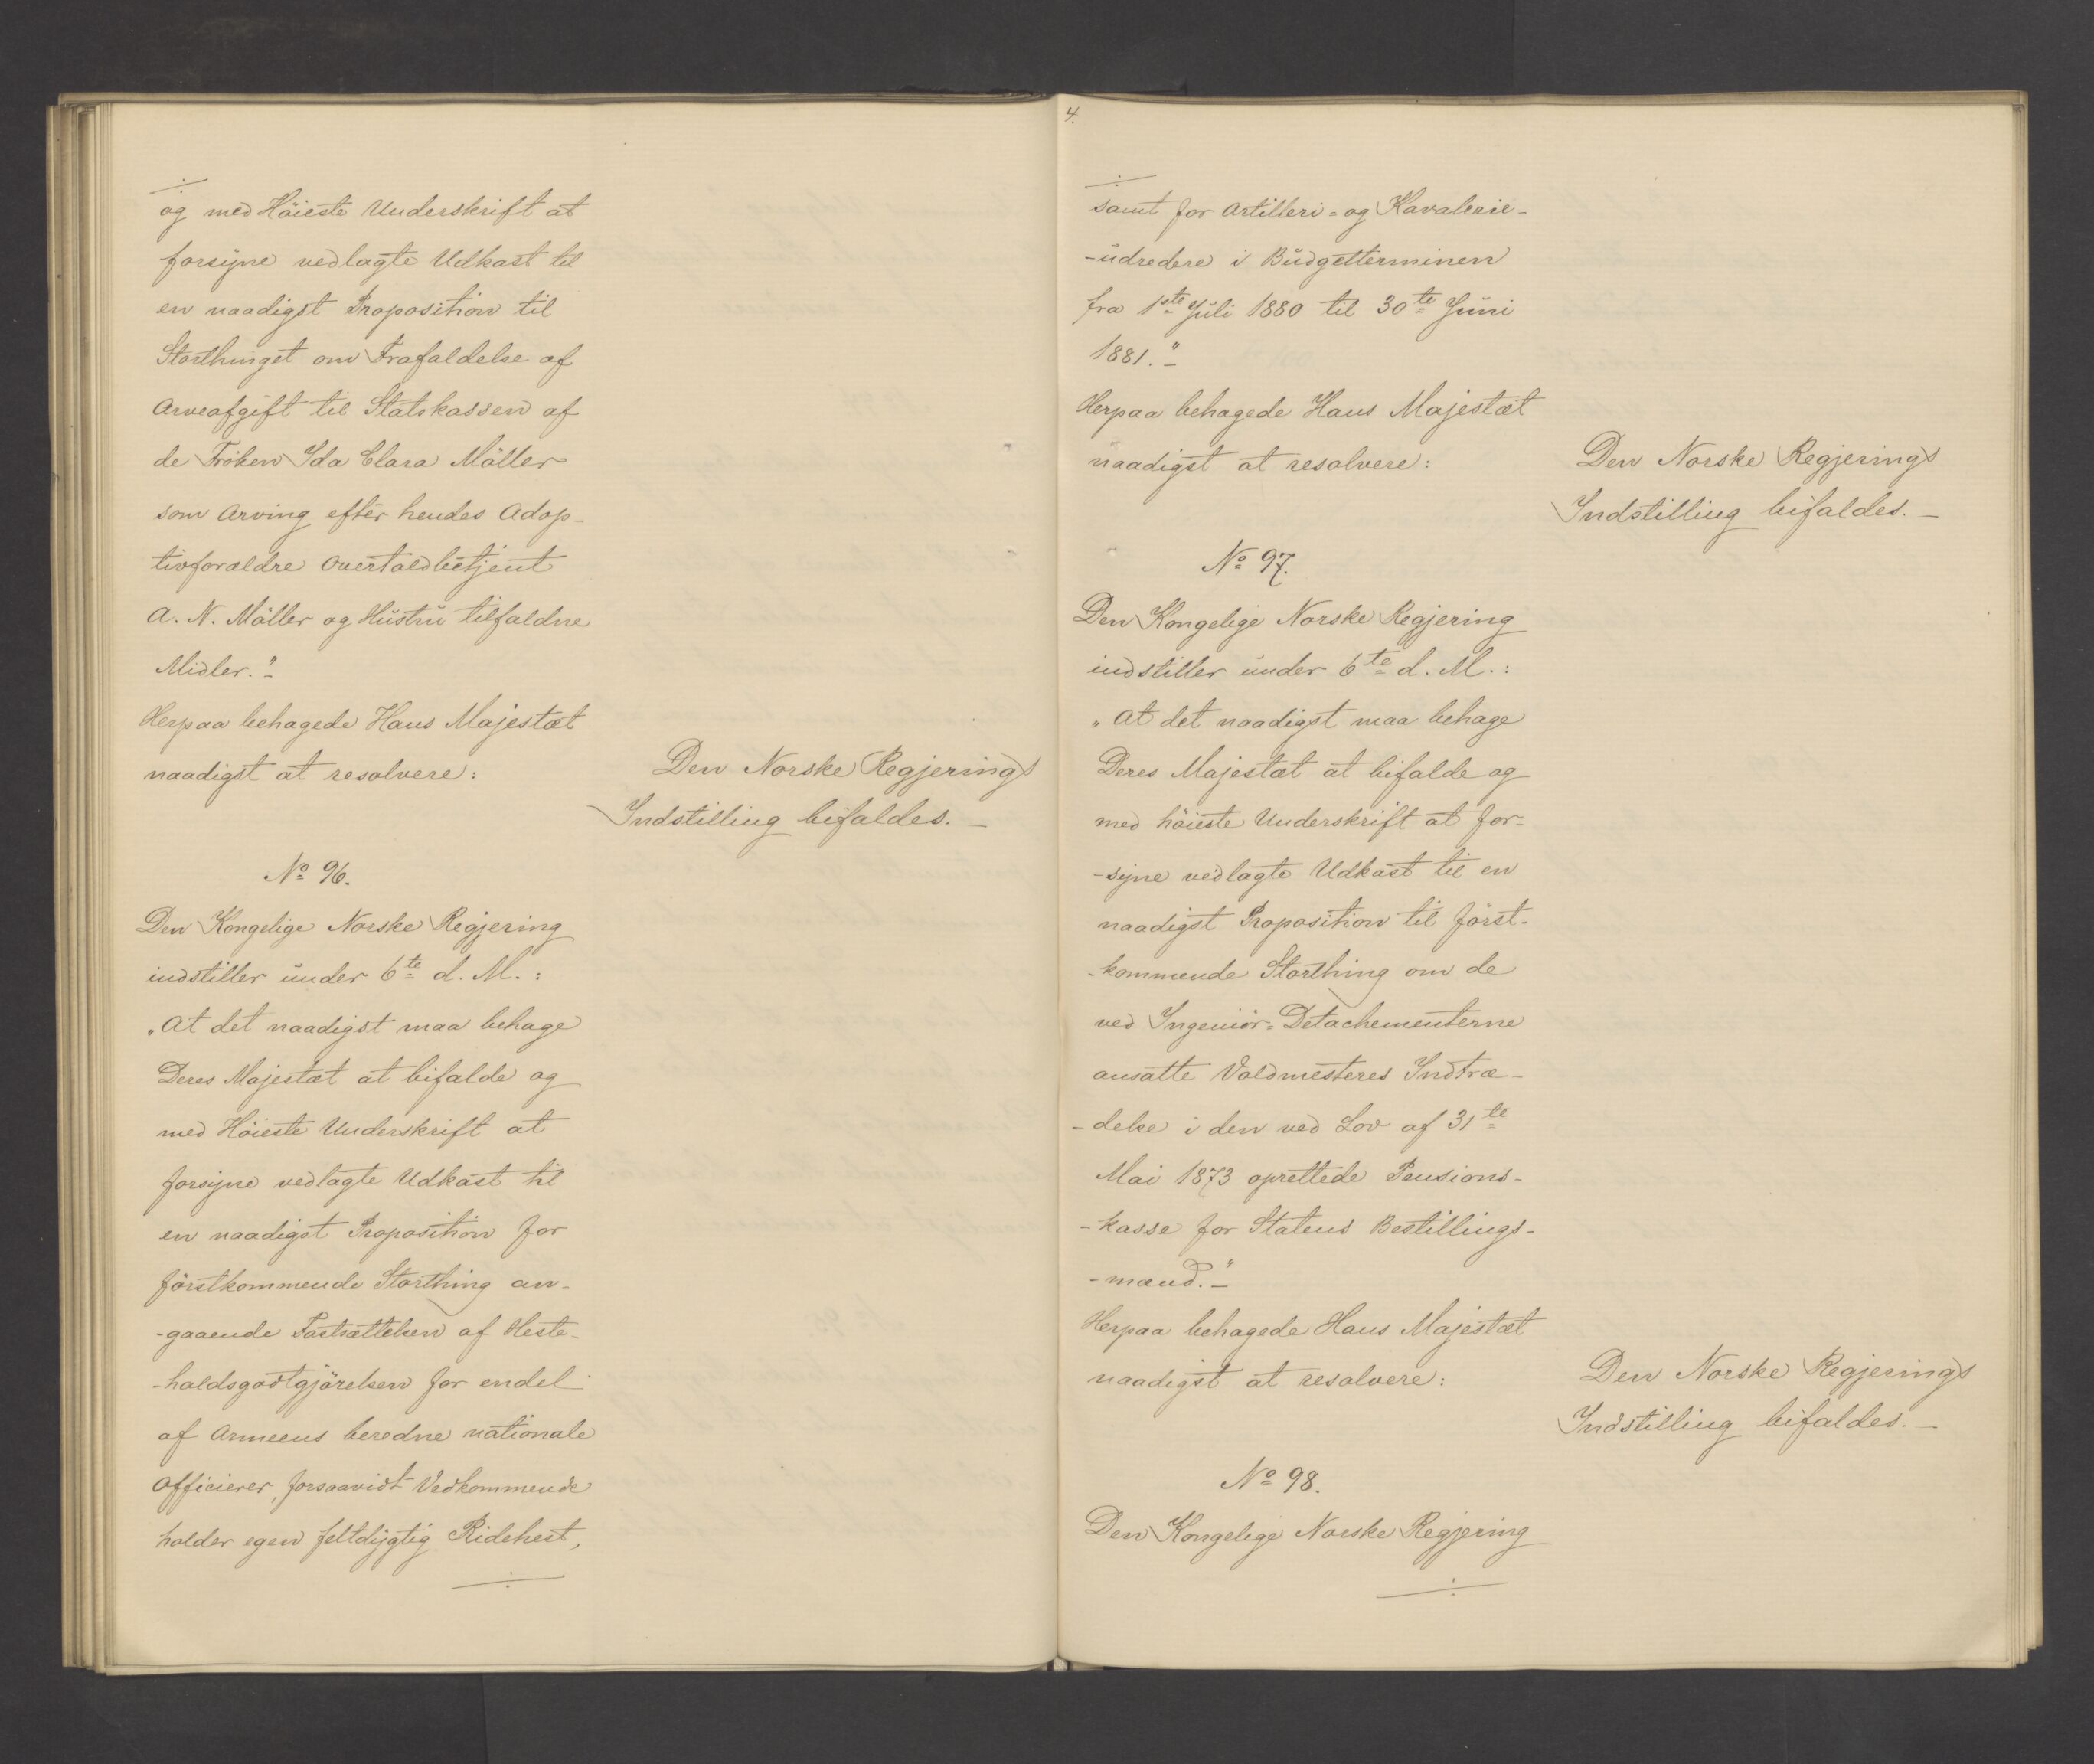 og med Höieste Underskrift at
forsyne vedlagte Udkast til
en naadigst Proposition til
Storthinget om Frafaldelse af
Arveafgift til Statskassen af
de Fröken Ida Clara Möller
som Arving efter hendes Adop-
tivforældre Overtoldbetjent
A. N. Möller og Hustru tilfaldne
Midler."
Herpaa behagede Hans Majestæt
naadigst at resolvere:
Den Norske Regjerings
Indstilling bifaldes.
No 96.
Den Kongelige Norske Regjering
indstiller under 6te d. M.:
„At det naadigst maa behage
Deres Majestæt at bifalde og
med Höieste Underskrift at
forsyne vedlagte Udkast til
en naadigst Proposition for
förstkommende Storthing an-
-gaaende Fastsættelsen af Heste-
-holdsgodtgjörelsen for endel
af Armeens beredne nationale
Officierer, forsaavidt Vedkommende
holder egen feltdygtig Ridehest,
4.
samt for Artilleri- og Kavaleri-
-udredere i Budgetterminen
fra 1ste Juli 1880 til 30te Juni
1881."
Herpaa behagede Hans Majestæt
naadigst at resolvere:
Den Norske Regjerings
Indstilling bifaldes.
No 97.
Den Kongelige Norske Regjering
indstiller under 6te d. M.:
„At det naadigst maa behage
Deres Majestæt at bifalde og
med höieste Underskrift at for-
-syne vedlagte Udkast til en
naadigst Proposition til först-
-kommende Storthing om de
ved Ingeniör-Detachementerne
ansatte Voldmesteres Indtræ-
-delse i den ved Lov af 31te
Mai 1873 oprettede Pensions-
-kasse for Statens Bestillings-
-mænd."
Herpaa behagede Hans Majestæt
naadigst at resolvere:
Den Norske Regjerings
Indstilling bifaldes.
No 98.
Den Kongelige Norske Regjering